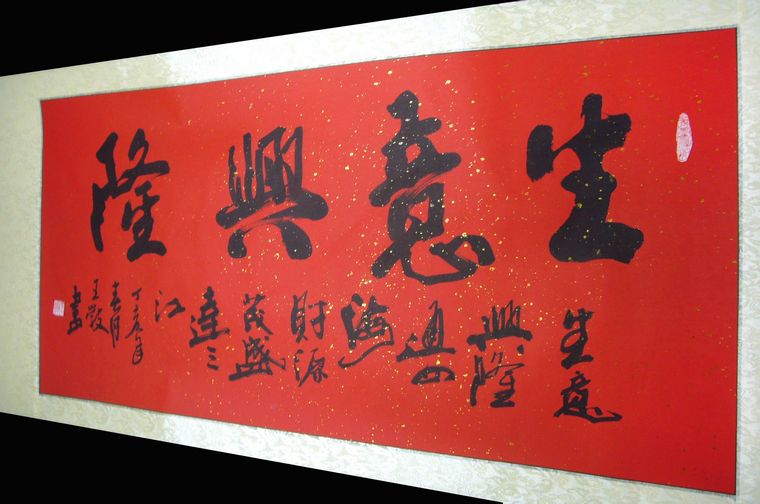 生意興隆
生意
興隆
通四
海
財源
茂盛
達三
江
丁亥年
春月
書